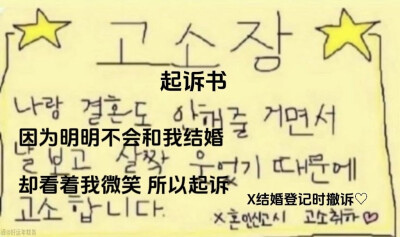 고소장
起诉书
나랑 결혼도 안해줄 거면서
因为明明不会和我结婚
날 보고 살짝 웃었기 때문에
却看着我微笑 所以起诉
고소합니다.
X结婚登记时撤诉♡
X혼인신고시 고소취하♡